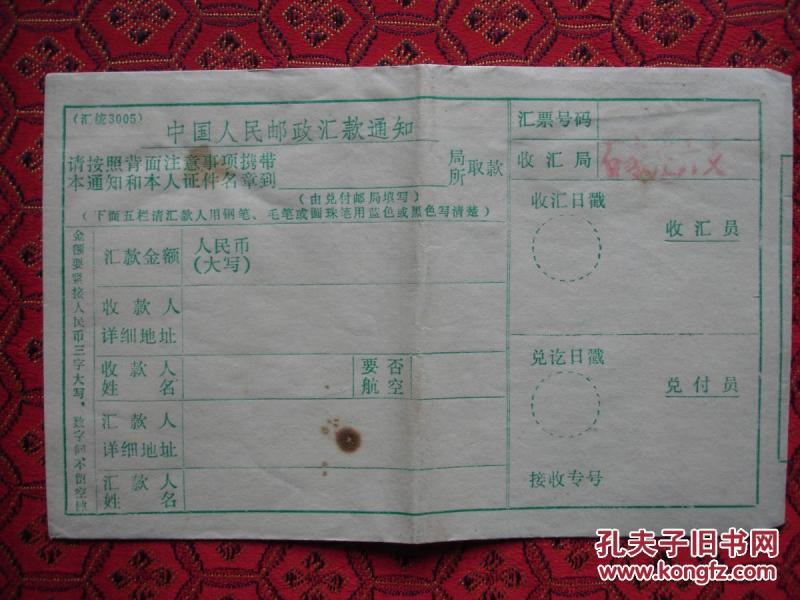 (汇统3005)
中国人民邮政汇款通知
请按照背面注意事项携带
本通知和本人证件名章到
局
所
取款
(由兑付邮局填写)
(下面五栏请汇款人用钢笔、毛笔或圆珠笔用蓝色或黑色写清楚)
金额要紧接人民币三字大写，数字间不留空
汇款金额
人民币
(大写)
收款人
详细地址
收款人
姓名
要否
航空
汇款人
详细地址
汇款人
姓名
汇票号码
收汇局
收汇日戳
收汇员
兑讫日戳
兑付员
接收专号
孔夫子旧书网
www.kongfz.com